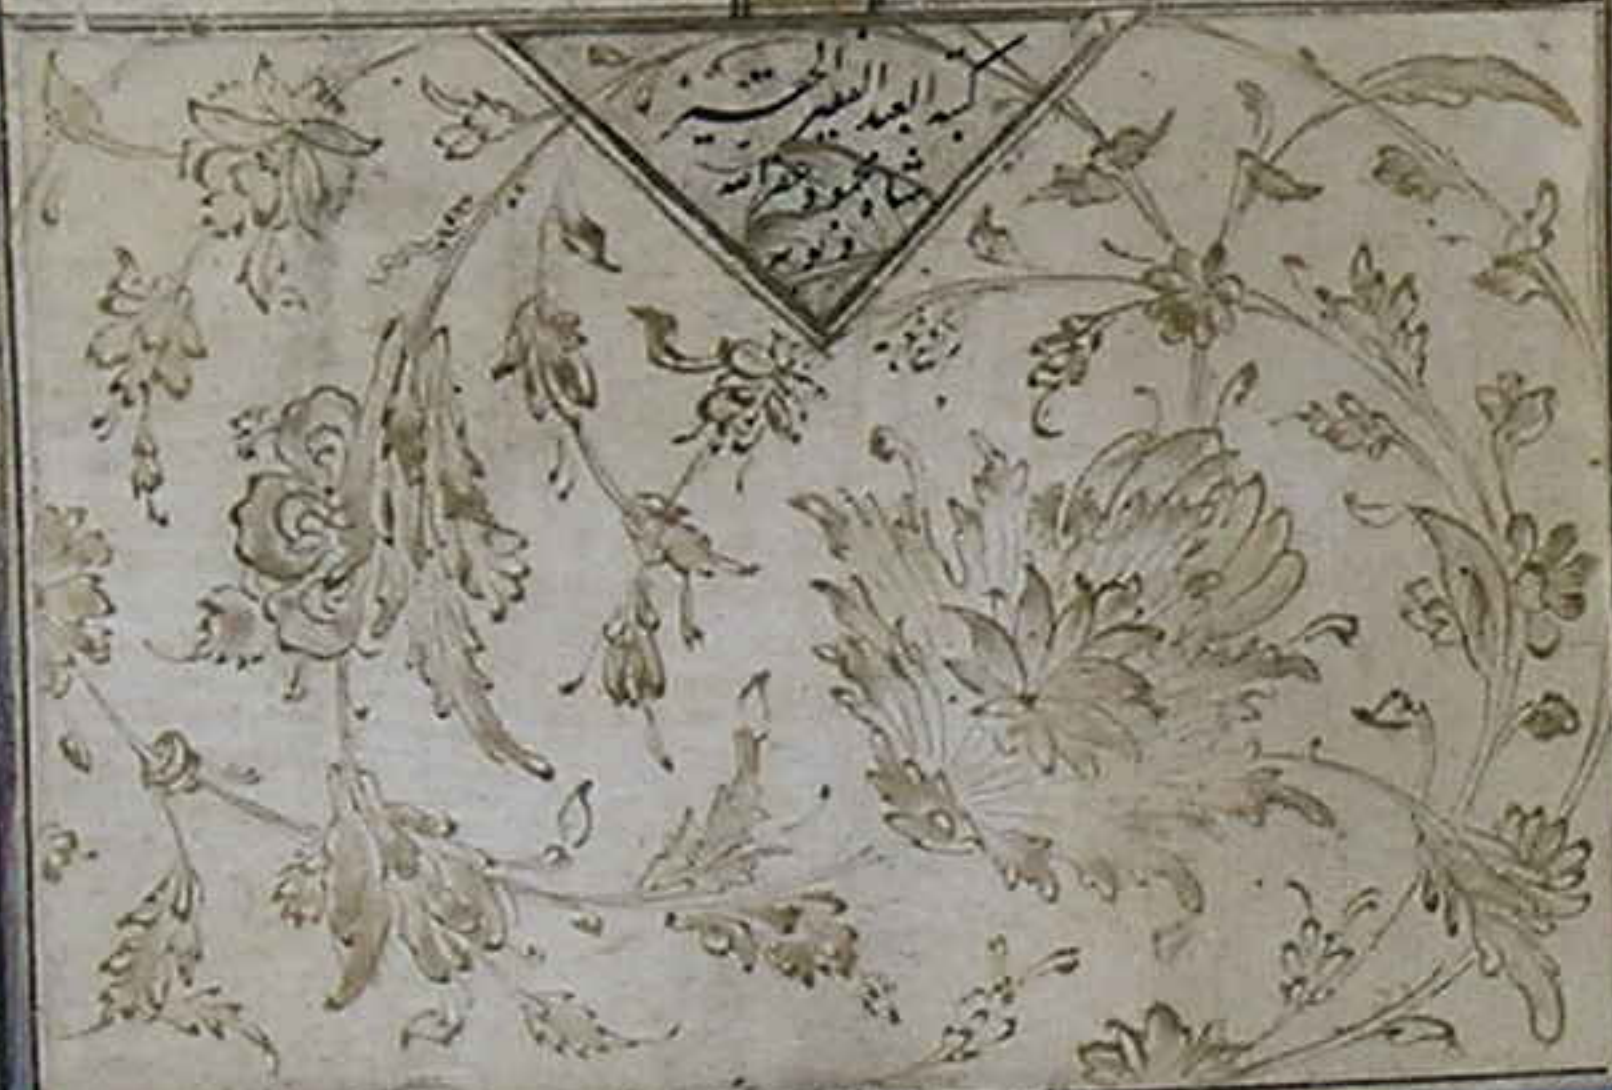 كتبه العبد الفقير الحقير
شاه محمود غفر الله
ذنوبه